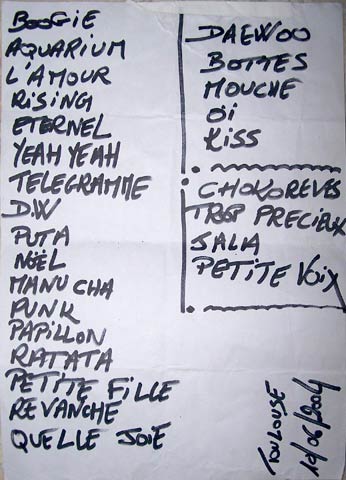 BOOGIE
AQUARIUM
L'AMOUR
RISING
ETERNEL
YEAH YEAH
TELEGRAMME
D.W
PUTA
NOËL
MANU CHA
PUNK
PAPILLON
RATATA
PETITE FILLE
REVANCHE
QUELLE JOIE
DAEWOO
BOTTES
MOUCHE
Oi
KISS
CHOKOREVES
TROP PRECIEUX
SALIA
PETITE VOIX
TOULOUSE